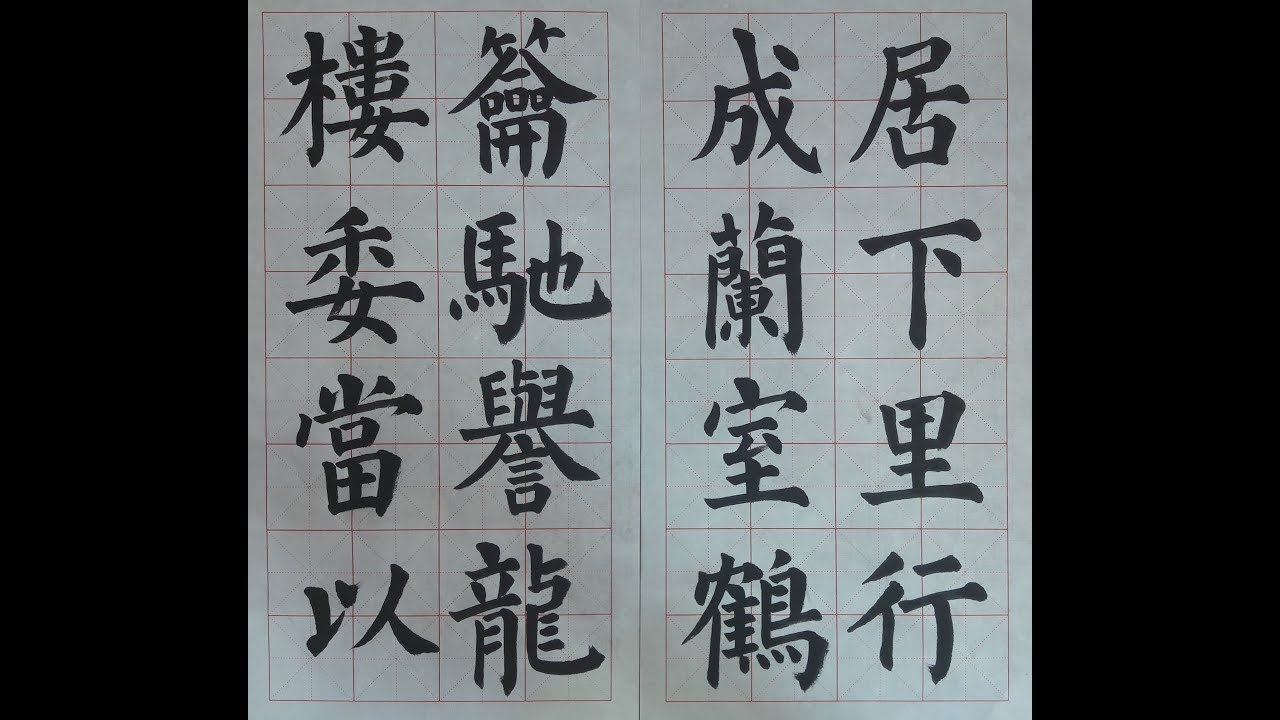 居下里行
成蘭室鶴
籥馳譽龍
樓委當以